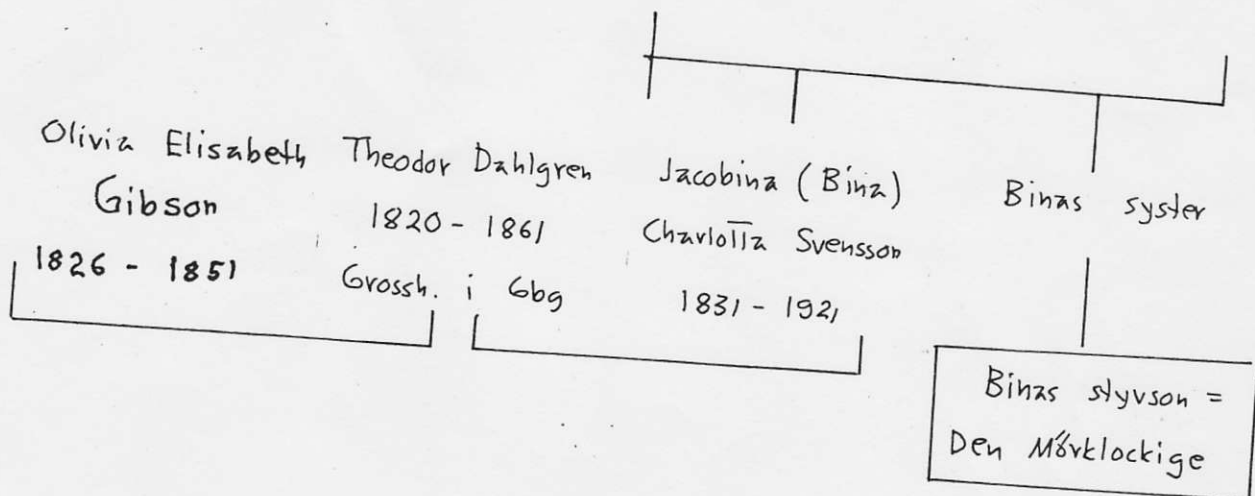 Olivia Elisabeth
Gibson
1826 - 1851
Theodor Dahlgren
1820 - 1861
Grossh. i Gbg
Jacobina (Bina)
Charlotta Svensson
1831 - 1921
Binas syster
Binas styvson =
Den Mörklockige